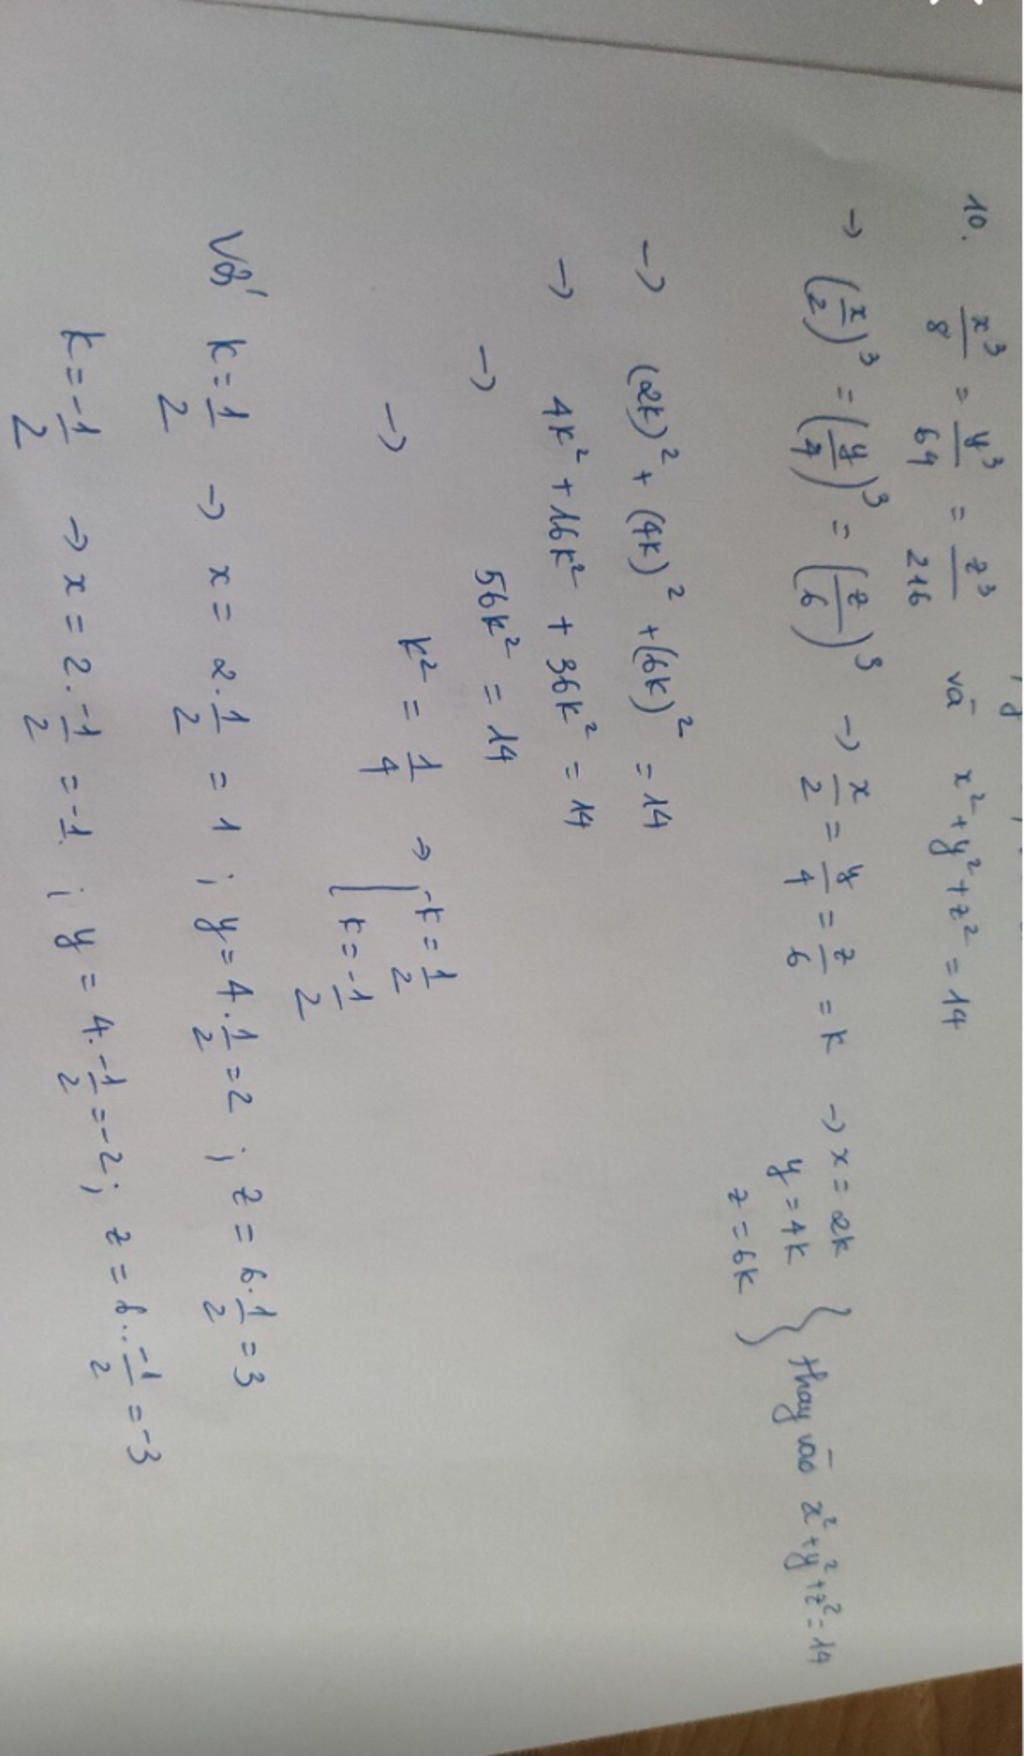 10. x³/8 = y³/64 = z³/216 và x² + y² + z² = 14
→ (x/2)³ = (y/4)³ = (z/6)³ → x/2 = y/4 = z/6 = k → x = 2k
y = 4k
z = 6k } thay vào x² + y² + z² = 14
→ (2k)² + (4k)² + (6k)² = 14
→ 4k² + 16k² + 36k² = 14
→ 56k² = 14
→ k² = 1/4 → [ k = 1/2
k = -1/2
Với k = 1/2 → x = 2.1/2 = 1 ; y = 4.1/2 = 2 ; z = 6.1/2 = 3
k = -1/2 → x = 2.-1/2 = -1 ; y = 4.-1/2 = -2 ; z = 6.-1/2 = -3